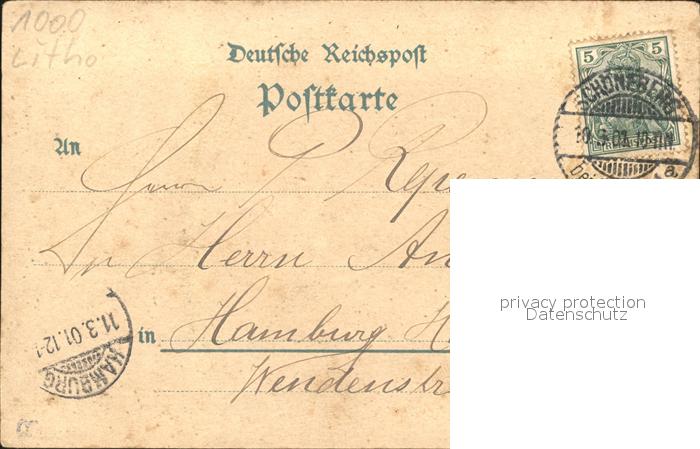 1000
Litho
Deutsche Reichspost
Postkarte
5 5
SCHÖNEBERG
10.3.01. 10-11N
a.
An
Herrn
Herrn
in Hamburg H
Wendenstr
11.3.01.12-1
HAMBURG
privacy protection
Datenschutz